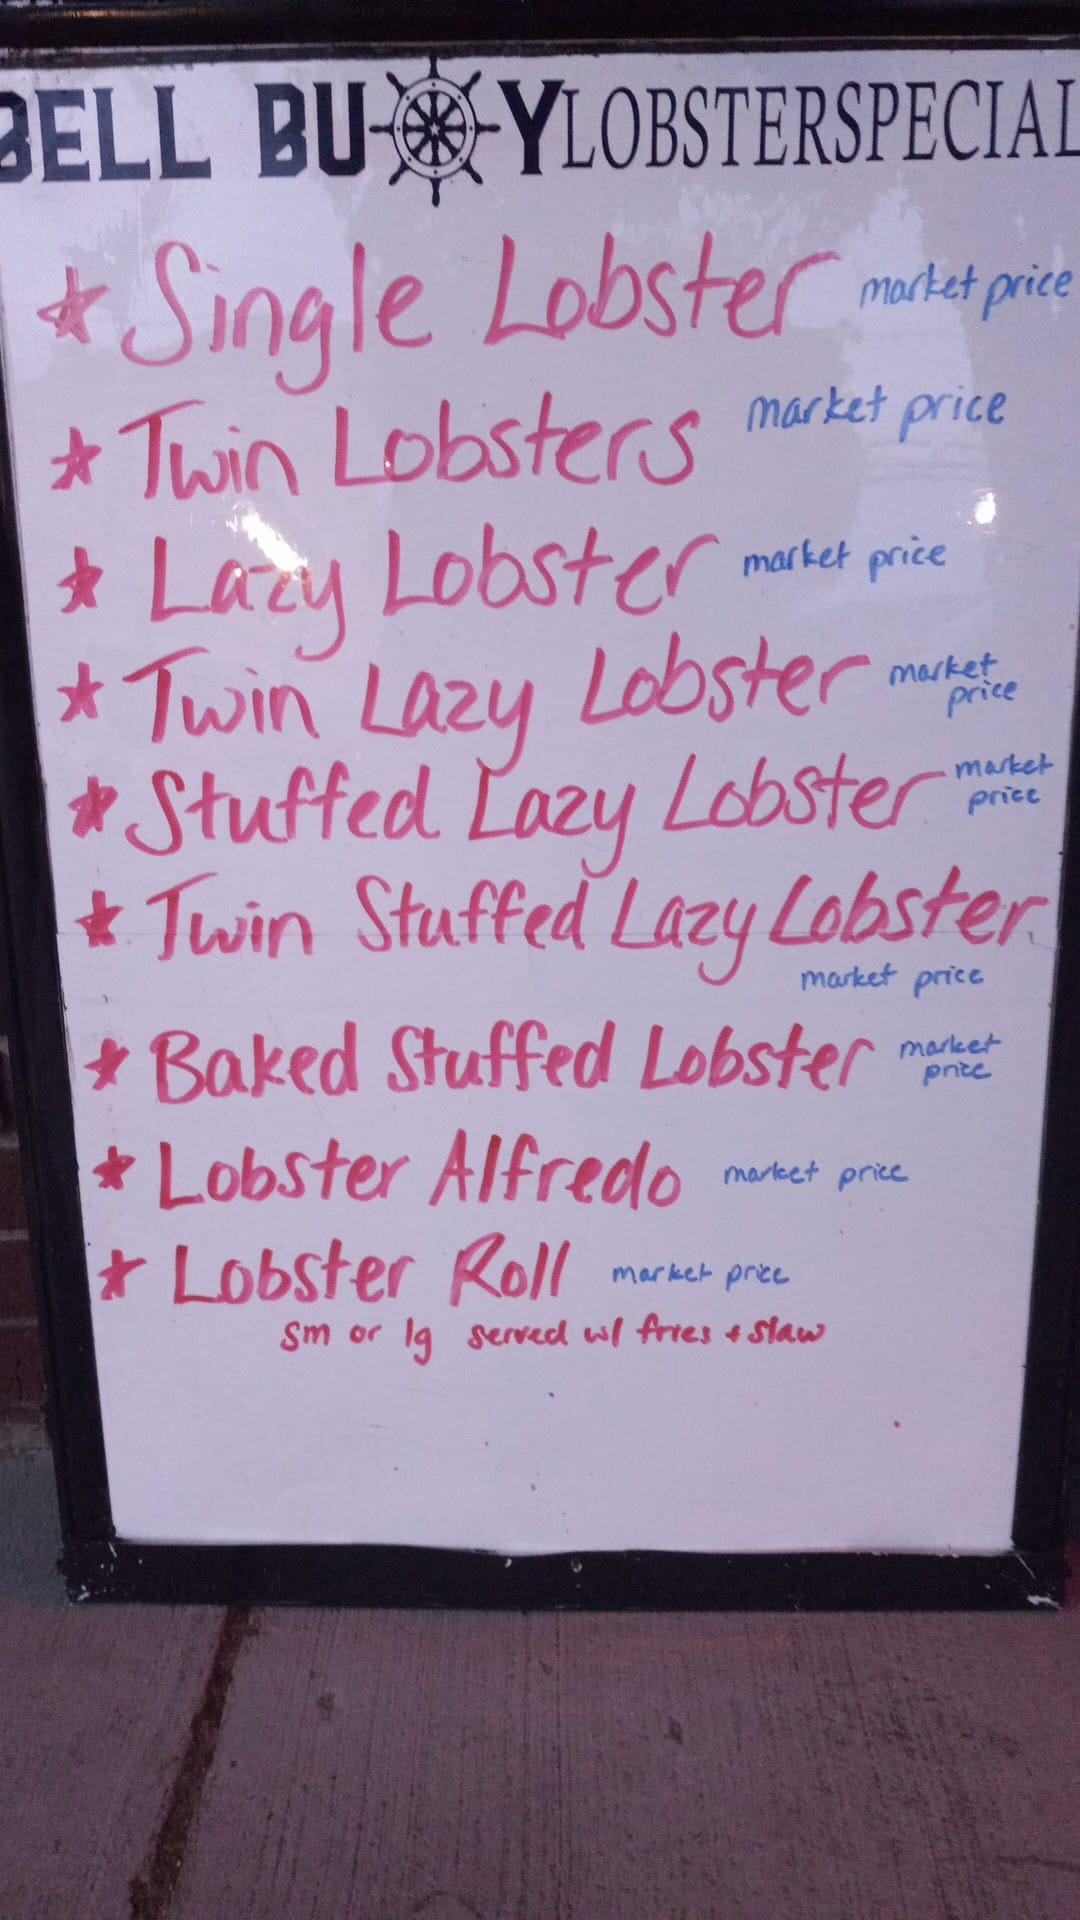 BELL BUOY LOBSTER SPECIAL
★ Single Lobster market price
★ Twin Lobsters market price
★ Lazy Lobster market price
★ Twin Lazy Lobster market price
★ Stuffed Lazy Lobster market price
★ Twin Stuffed Lazy Lobster
market price
★ Baked Stuffed Lobster market price
★ Lobster Alfredo market price
★ Lobster Roll market price
sm or lg served w/ fries + slaw